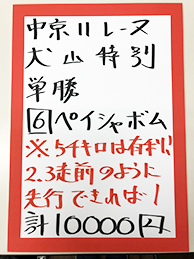 中京11レース
犬山特別
単勝
6 ペイシャボム
※54キロは有利!
2.3走前のように
先行できれば!
計10000円